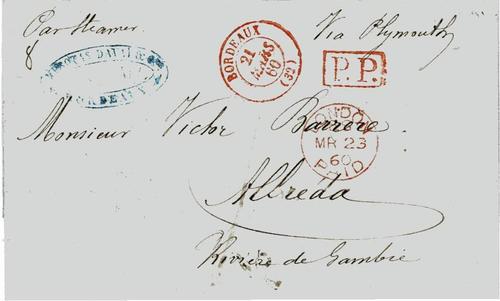 Par Steamer
Via Plymouth
8
BORDEAUX
21
MARS
60
(32)
P.P.
BORDEAUX
Monsieur Victor Barrere
LONDON
MR 23
60
PAID
Albreda
Rivière de Gambie